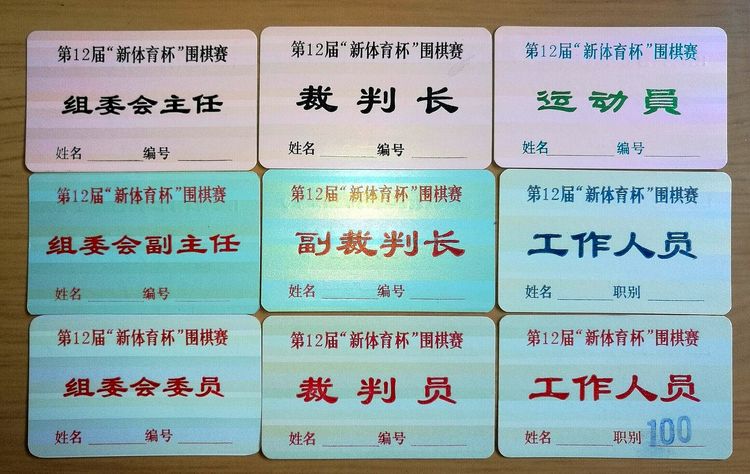 第12届“新体育杯”围棋赛
组委会主任
姓名 编号
第12届“新体育杯”围棋赛
裁判长
姓名 编号
第12届“新体育杯”围棋赛
运动員
姓名 编号
第12届“新体育杯”围棋赛
组委会副主任
姓名 编号
第12届“新体育杯”围棋赛
副裁判长
姓名 编号
第12届“新体育杯”围棋赛
工作人员
姓名 职别
第12届“新体育杯”围棋赛
组委会委员
姓名 编号
第12届“新体育杯”围棋赛
裁判员
姓名 编号
第12届“新体育杯”围棋赛
工作人员
姓名 职别 100